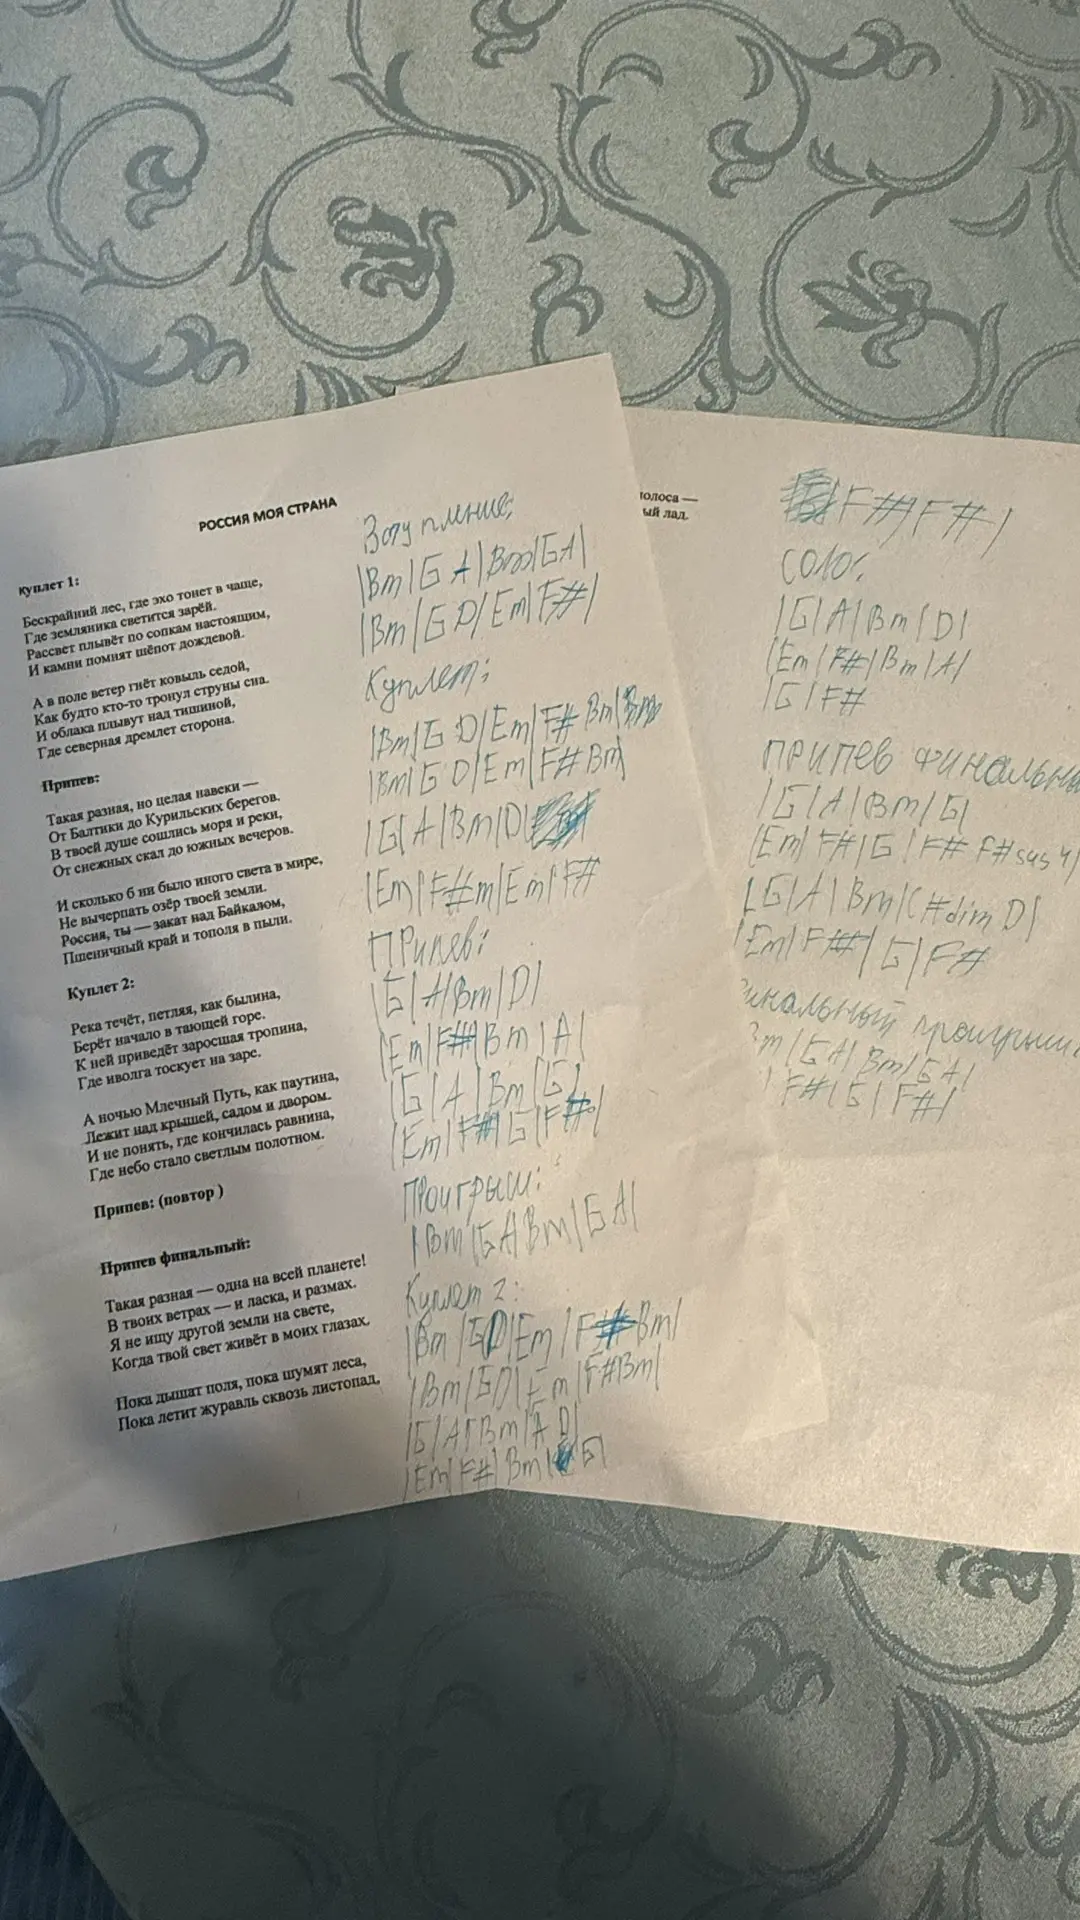 РОССИЯ МОЯ СТРАНА
куплет 1:
Бескрайний лес, где эхо тонет в чаще,
Где земляника светится зарёй.
Рассвет плывёт по сопкам настоящим,
И камни помнят шёпот дождевой.
А в поле ветер гнёт ковыль седой,
Как будто кто-то тронул струны сна.
И облака плывут над тишиной,
Где северная дремлет сторона.
Припев:
Такая разная, но целая навеки —
От Балтики до Курильских берегов.
В твоей душе сошлись моря и реки,
От снежных скал до южных вечеров.
И сколько б ни было иного света в мире,
Не вычерпать озёр твоей земли.
Россия, ты — закат над Байкалом,
Пшеничный край и тополя в пыли.
Куплет 2:
Река течёт, петляя, как былина,
Берёт начало в тающей горе.
К ней приведёт заросшая тропина,
Где иволга тоскует на заре.
А ночью Млечный Путь, как паутина,
Лежит над крышей, садом и двором.
И не понять, где кончилась равнина,
Где небо стало светлым полотном.
Припев: (повтор )
Припев финальный:
Такая разная — одна на всей планете!
В твоих ветрах — и ласка, и размах.
Я не ищу другой земли на свете,
Когда твой свет живёт в моих глазах.
Пока дышат поля, пока шумят леса,
Пока летит журавль сквозь листопад,
Вступление:
|Bm|G A|Bm|G A|
|Bm|G D|Em|F#|
Куплет:
|Bm|G D|Em|F# Bm|
|Bm|G D|Em|F# Bm|
|G|A|Bm|D|
|Em|F#m|Em|F#
Припев:
|G|A|Bm|D|
|Em|F#|Bm|A|
|G|A|Bm|G|
|Em|F#|G|F#|
Проигрыш:
|Bm|GA|Bm|GA|
Куплет 2:
|Bm|GD|Em|F# Bm|
|Bm|GD|Em|F#Bm|
|G|A|Bm|A D|
|Em|F#|Bm| G|
голоса —
ый лад.
|F#|F#|
соло:
|G|A|Bm|D|
|Em|F#|Bm|A|
|G|F#
ПРИПЕВ ФИНАЛЬНЫ
|G|A|Bm|G|
|Em|F#|G|F# F#sus4|
|G|A|Bm|C#dim D|
|Em|F#|G|F#
инальный проигрыш
Bm|GA|Bm|GA|
| F#|G|F#|